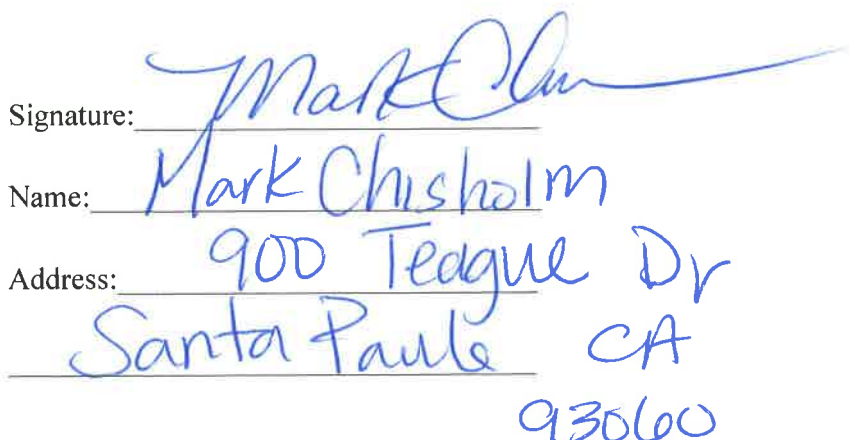 Signature: Mark Ch
Name: Mark Chisholm
Address: 900 Teague Dr
Santa Paula CA
93060